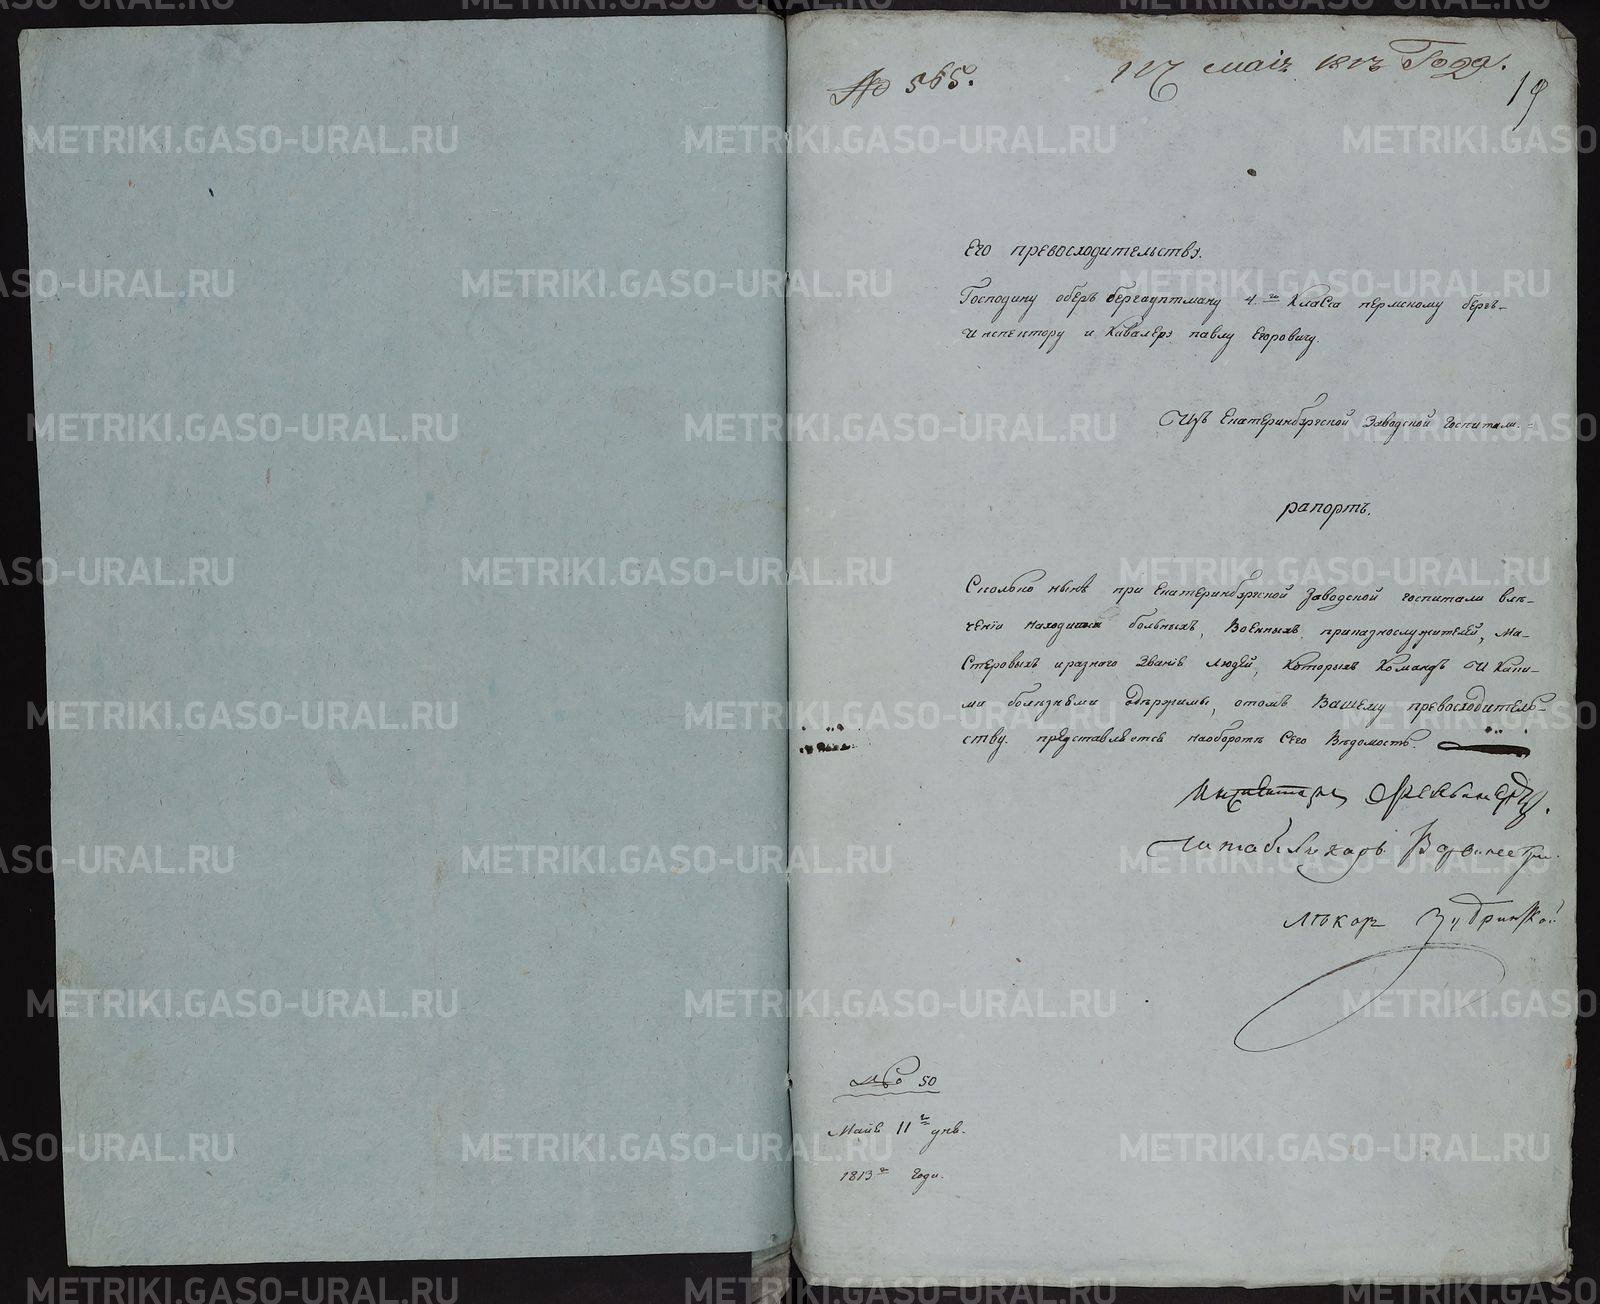 № 565.
маія 1813 Года.
19
Его превосходительству.
Господину оберъ бергауптману 4.го Класса пермскому бергъ-
Инспектору и Кавалеру павлу Егоровичу.
Изъ Екатеринбургской Заводской госпитали.-
рапортъ.
Сколько нынѣ при Екатеринбургской Заводской госпитали влѣ-
ченіи находится больныхъ, Военныхъ принадлежителей, Ма-
Стеровыхъ иразного Званія людей, Которыхъ Командъ И каки-
ми болѣзньми одержимы, отомъ Вашему превосходитель-
ству. представляется наоборотѣ Сего Вѣдомость.
Инспекторъ
Штабълѣкарь
лѣкарь
№ 50
Майя 11го дня.
1813го Года.
METRIKI.GASO-URAL.RU